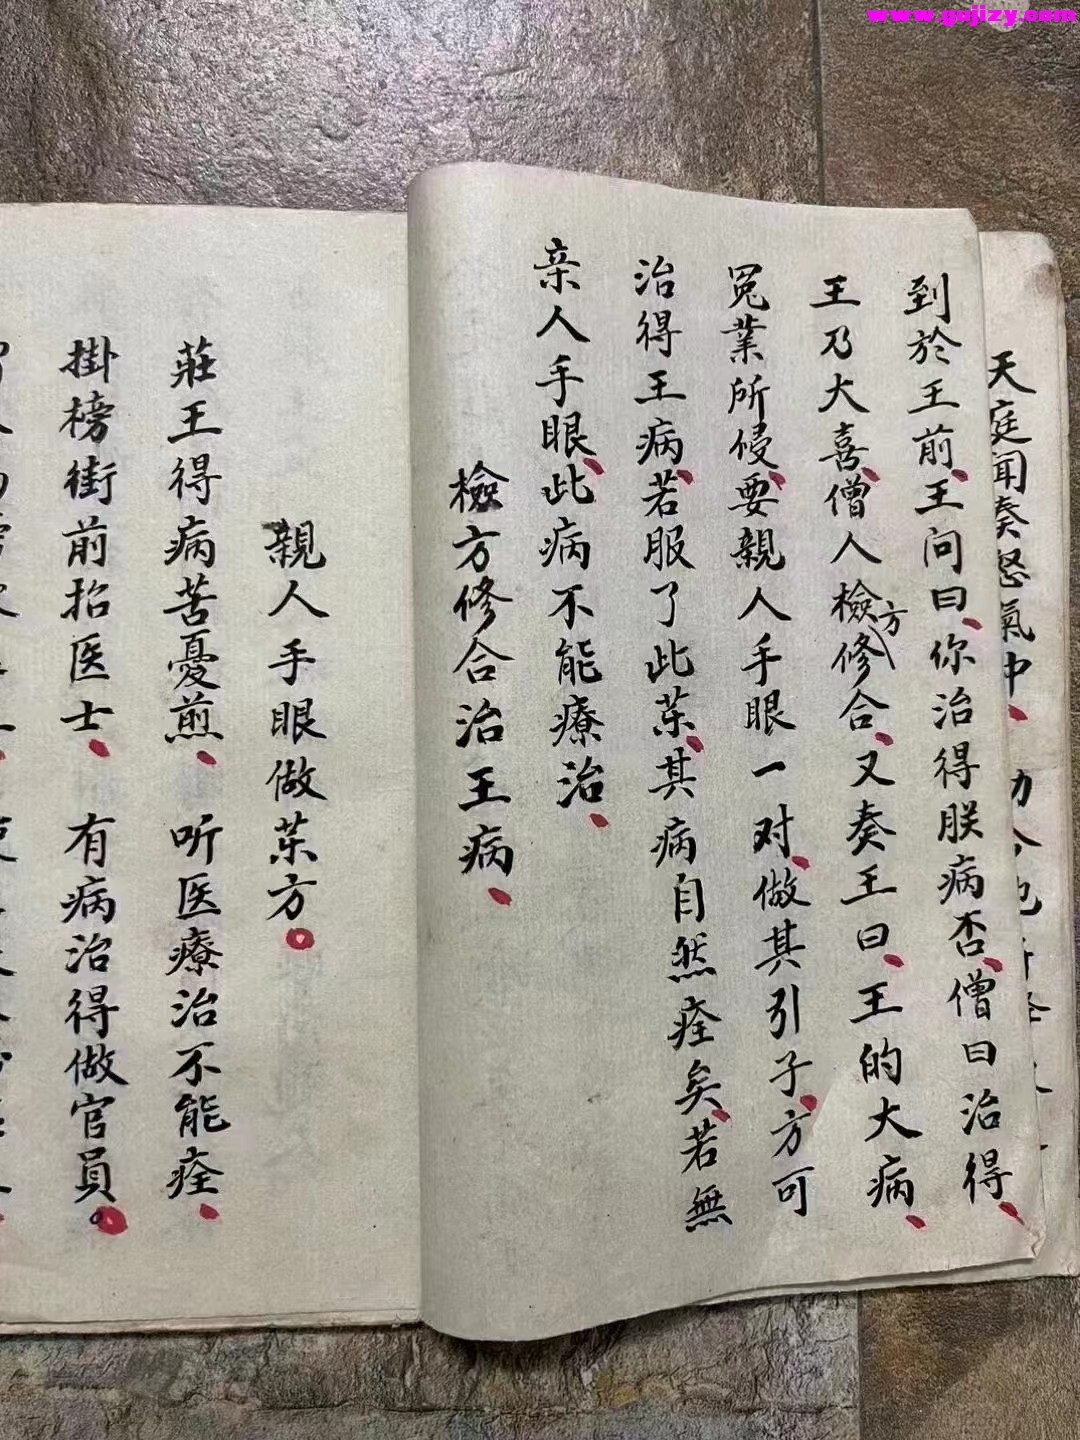 www.gujizy.com
天庭聞奏怒氣中、
到於王前、王问曰、你治得朕病否、僧曰治得、
王乃大喜、僧人檢方修合、又奏王曰、王的大病、
冤業所侵、要親人手眼一对、做其引子、方可
治得王病、若服了此茱、其病自然痊矣、若無
亲人手眼、此病不能療治、
檢方修合治王病、
親人手眼做茱方。
莊王得病苦憂煎、 听医療治不能痊、
掛榜街前招医士、 有病治得做官員。